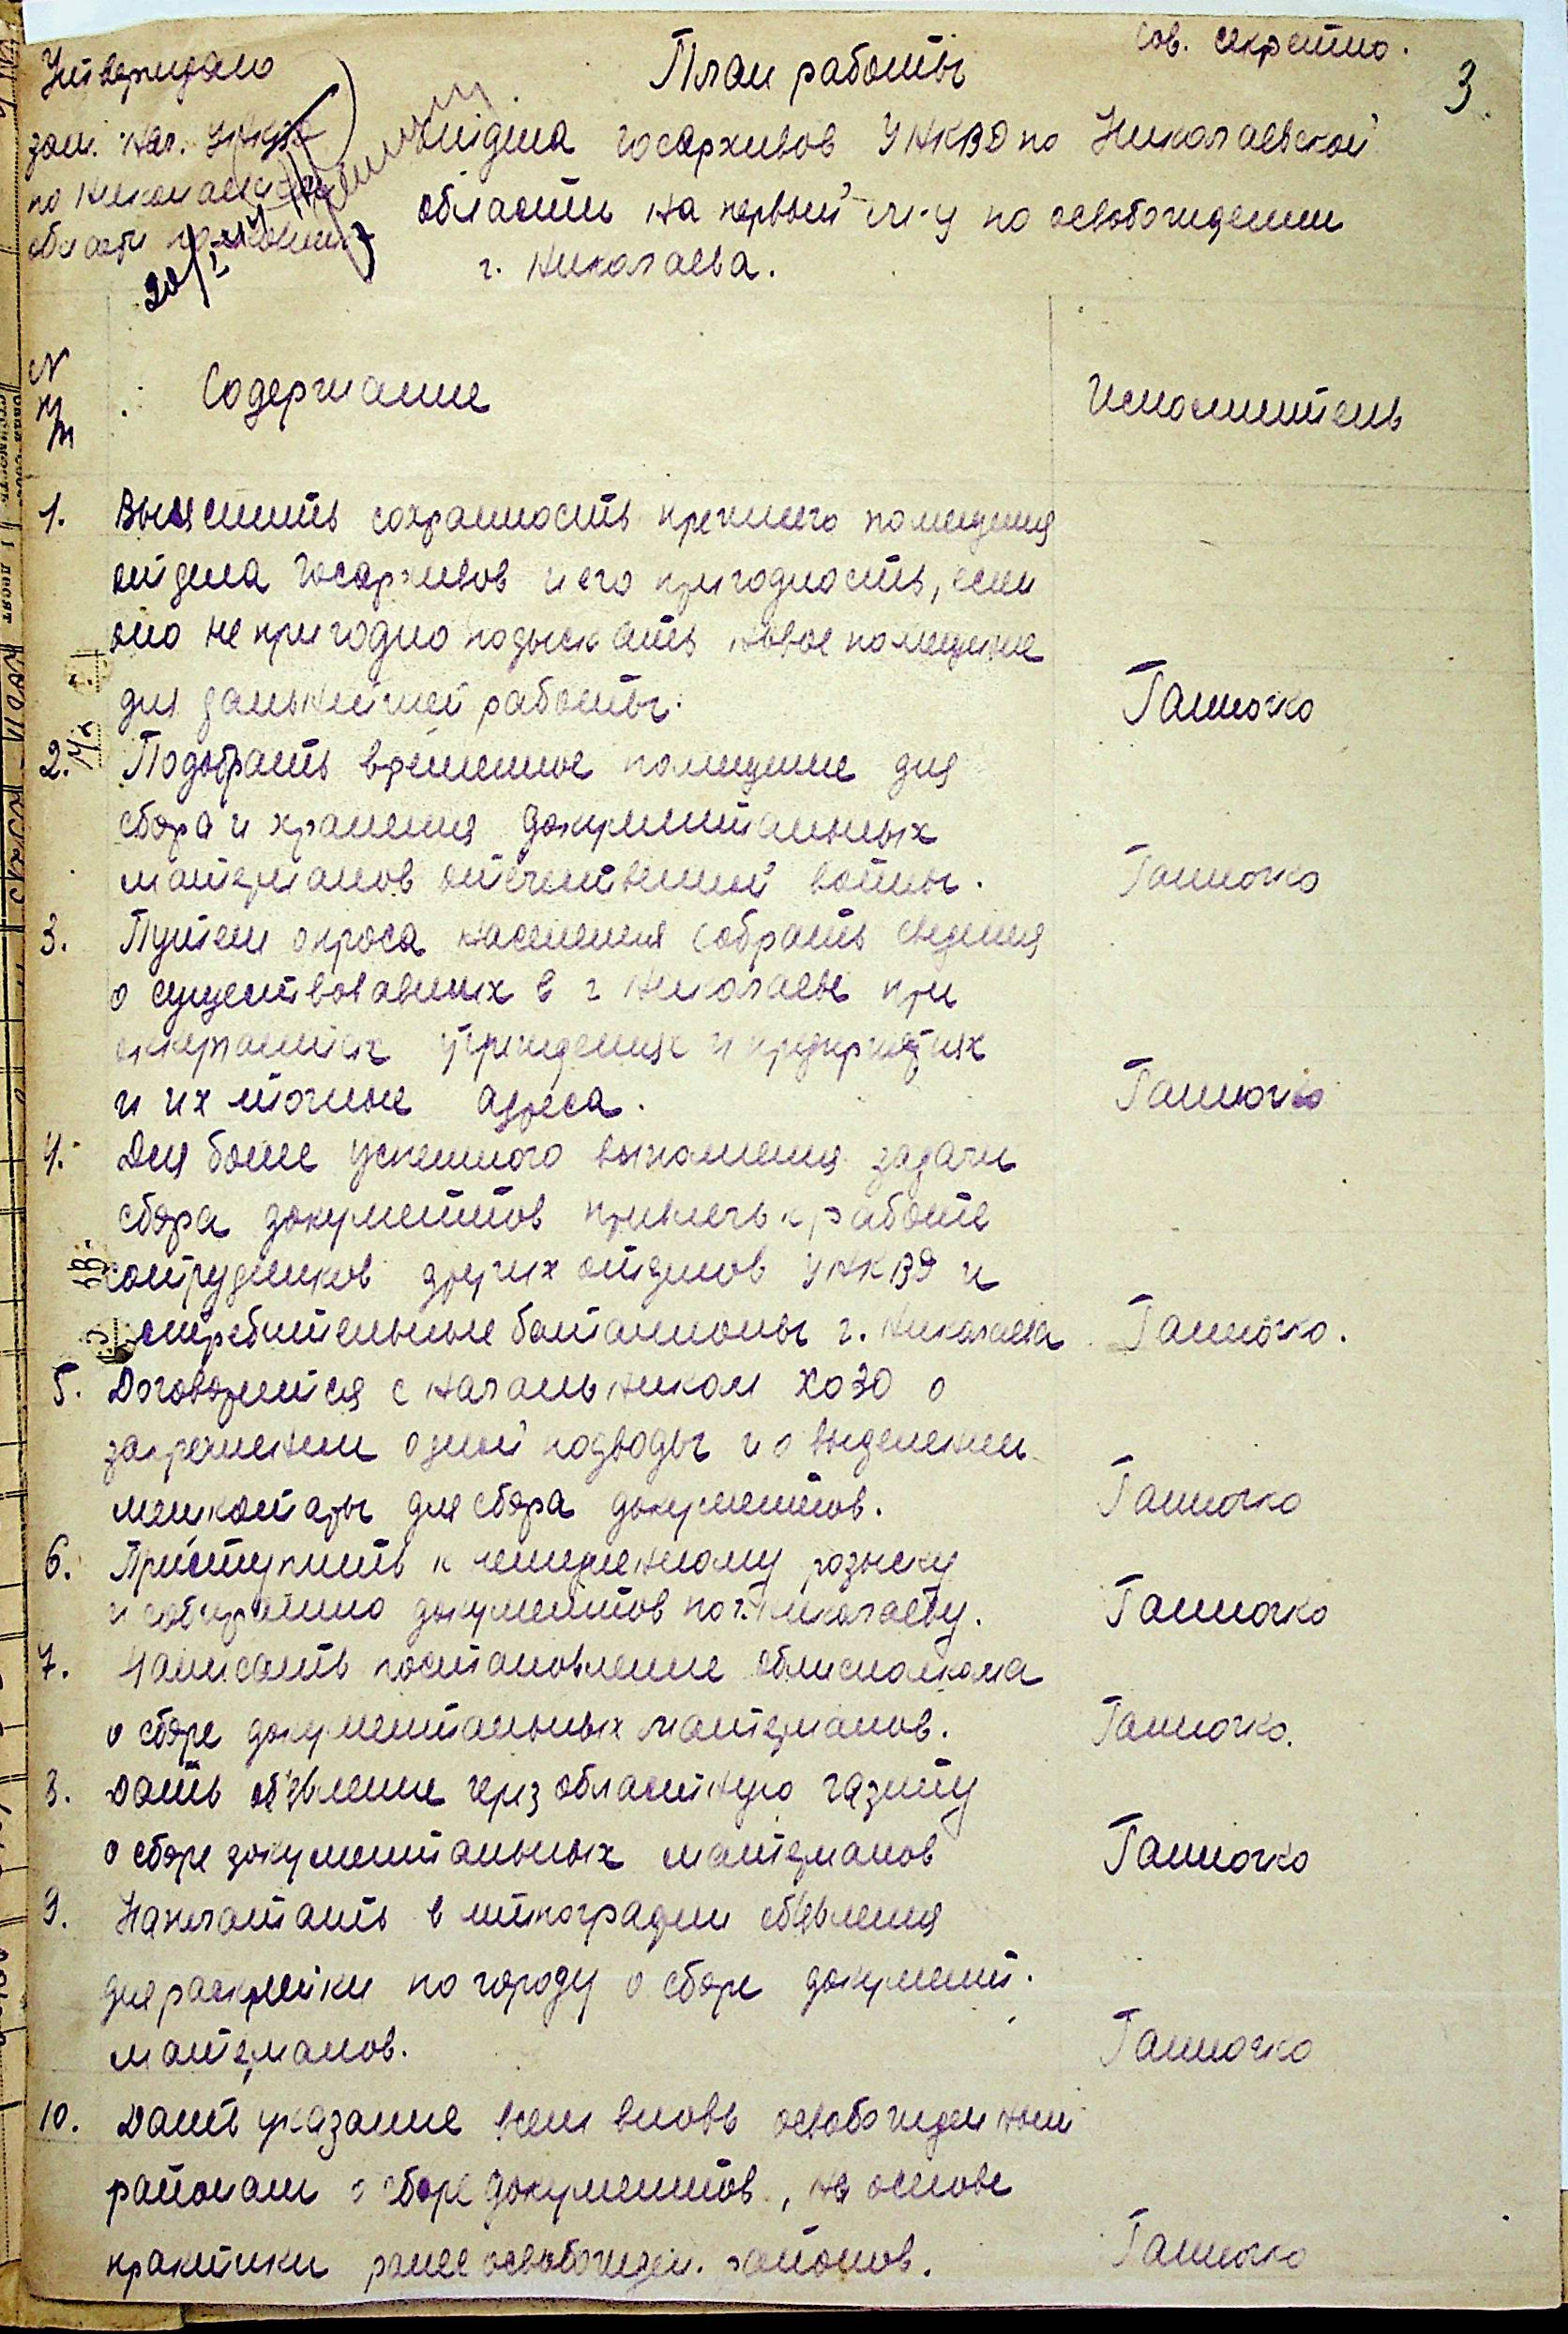 Сов. секретно.
3
Утверждаю
зам. нач. УНКВД
по Николаевской
области полковник
20/I
План работы
отдела Госархивов УНКВД по Николаевской
области на первый м-ц по освобождении
г. Николаева.
N
п/п
Содержание
Исполнитель
1. Выяснить сохранность прежнего помещения
отдела Госархивов и его пригодность, если
оно не пригодно подыскать новое помещение
для дальнейшей работы. Ганночко
2. Подобрать временное помещение для
сбора и хранения документальных
материалов отечественной войны. Ганночко
3. Путем опроса населения собрать сведения
о существовавших в г Николаеве при
оккупантах учреждениях и предприятиях
и их точные адреса. Ганночко
4. Для более успешного выполнения задачи
сбора документов привлечь к работе
сотрудников других отделов УНКВД и
истребительные батальоны г. Николаева Ганночко.
5. Договориться с начальником ХОЗО о
закреплении одной подводы и о выделении
мешкотары для сбора документов. Ганночко
6. Приступить к немедленному розыску
и собиранию документов по г. Николаеву. Ганночко
7. Написать постановление облисполкома
о сборе документальных материалов. Ганночко.
8. Дать об'явление через областную газету
о сборе документальных материалов Ганночко
9. Напечатать в типографии об'явления
для расклейки по городу о сборе документ.
материалов. Ганночко
10. Дать указание всем вновь освобожденным
районам о сборе документов, на основе
практики ранее освобожден. районов. Ганночко